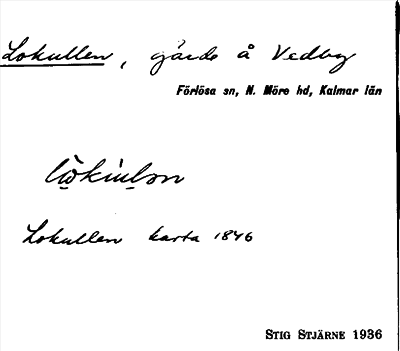 Lokullen, gärde å Vedby
Förlösa sn, N. Möre hd, Kalmar län
Lokullen karta 1846
STIG STJÄRNE 1936